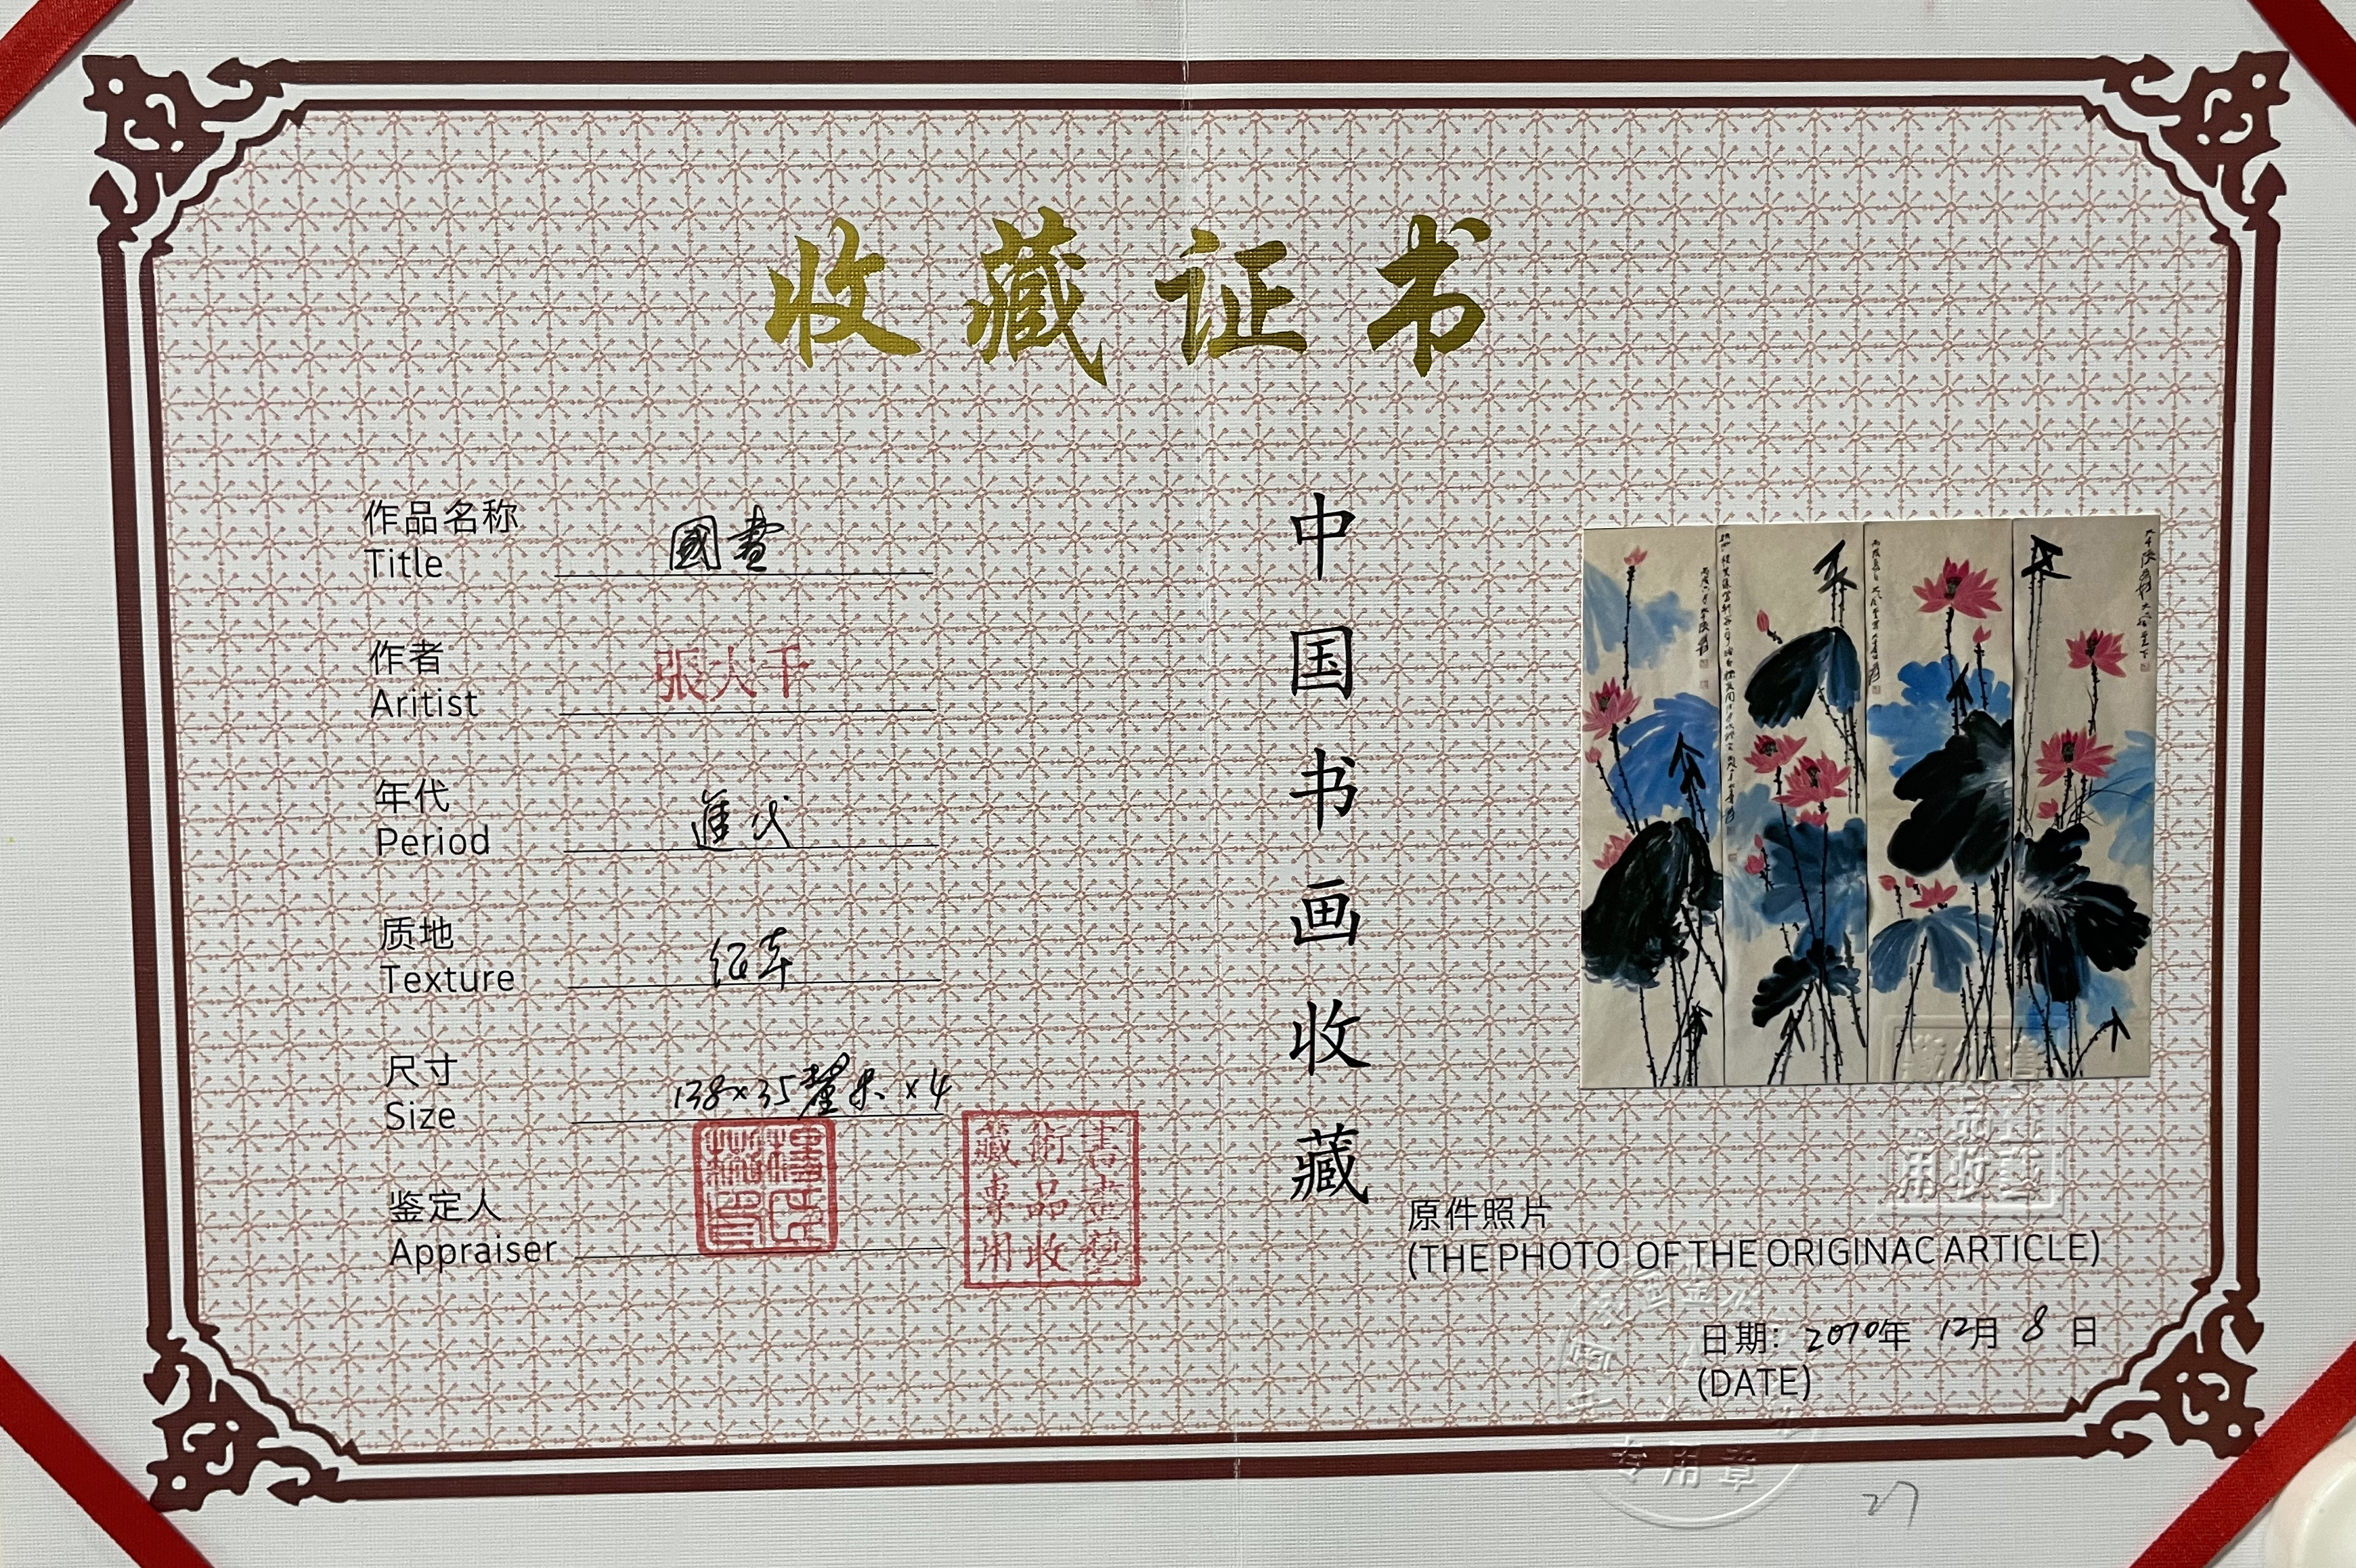 收藏证书
作品名称
Title
國畫
作者
Aritist
張大千
年代
Period
質地
Texture
尺寸
Size
138×35釐米×4
鉴定人
Appraiser
書畫藝
術品收
藏專用
中国书画收藏
原件照片
(THE PHOTO OF THE ORIGINAC ARTICLE)
日期: 2010年 12月 8日
(DATE)
专用章
27